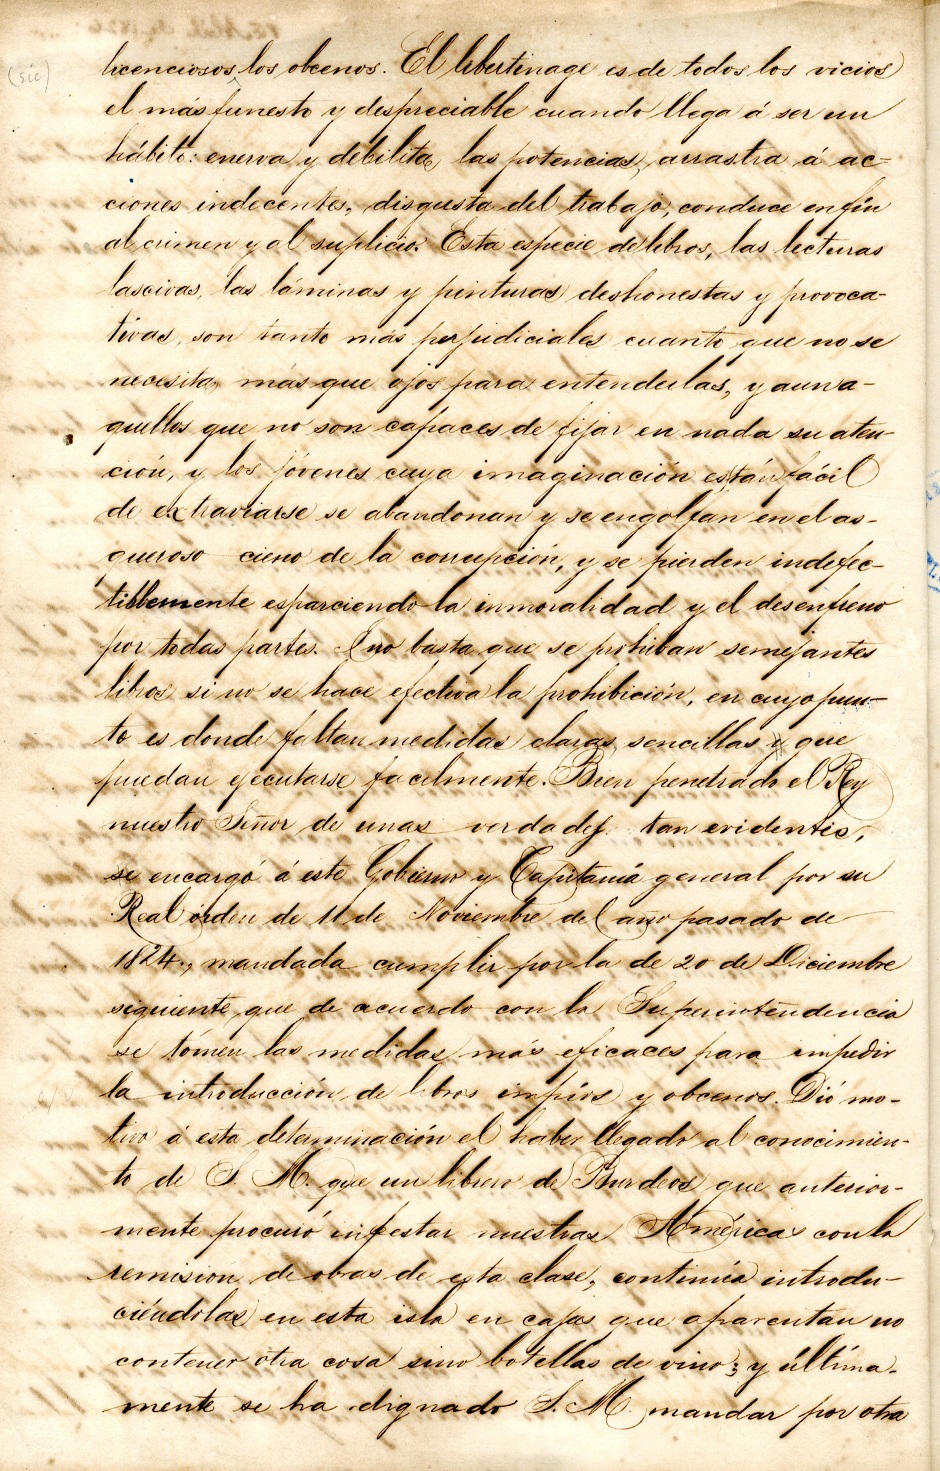 (sic)
licenciosos, los obcenos. El libertinage es de todos los vicios
el más funesto y despreciable cuando llega á ser un
hábito: enerva y debilita las potencias, arrastra á ac-
ciones indecentes, disgusta del trabajo, conduce en fin
al crimen y al suplicio. Esta especie de libros, las lecturas
lascivas, las láminas y pinturas deshonestas y provoca-
tivas, son tanto más perjudiciales cuanto que no se
necesita más que ojos para entenderlas, y aun a-
quellos que no son capaces de fijar en nada su aten-
ción, y los jóvenes cuya imaginación es tán fácil
de extraviarse se abandonan y se engolfan en el as-
queroso cieno de la corrupción, y se pierden indefec-
tiblemente esparciendo la inmoralidad y el desenfreno
por todas partes. Y no basta que se prohiban semejantes
libros si no se hace efectiva la prohibición, en cuyo pun-
to es donde faltan medidas claras, sencillas y que
puedan ejecutarse facilmente. Bien penetrado el Rey
nuestro Señor de unas verdades tan evidentes,
se encargó á este Gobierno y Capitanía general por su
Real órden de 11 de Noviembre del año pasado de
1824., mandada cumplir por la de 20 de Diciembre
siguiente, que de acuerdo con la Superintendencia
se tomen las medidas más eficaces para impedir
la introducción de libros impíos y obcenos. Dió mo-
tivo á esta determinación el haber llegado al conocimien-
to de S. M. que un librero de Burdeos que anterior-
mente procuró infestar nuestras Américas con la
remisión de obras de esta clase, continúa introdu-
ciéndolas en esta isla en cajas que aparentan no
contener otra cosa sino botellas de vino; y última-
mente se ha dignado S. M. mandar por otra